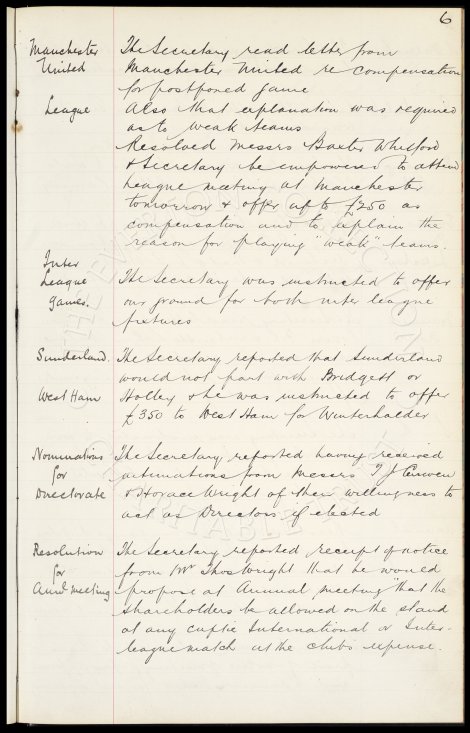 6
Manchester
United
The Secretary read letter from
Manchester United re compensation
for postponed game
League
Also that explanation was required
as to weak teams
Resolved Messrs Baxter Whitford
& Secretary be empowered to attend
League meeting at Manchester
tomorrow & offer up to £250 as
compensation and to explain the
reason for playing "weak" teams.
Inter
League
games.
The Secretary was instructed to offer
our ground for both inter league
fixtures
Sunderland.
The Secretary reported that Sunderland
would not part with Bridgett or
West Ham
Holley & he was instructed to offer
£350 to West Ham for Winterhalder
Nominations
for
Directorate
The Secretary reported having received
intimations from Messrs T J Curwen
& Horace Wright of their willingness to
act as Directors if elected
Resolution
for
Annl meeting
The Secretary reported receipt of notice
from Mr Thos Wright that he would
propose at Annual meeting "that the
shareholders be allowed on the stand
at any cuptie International or Inter-
league match at the clubs expense.